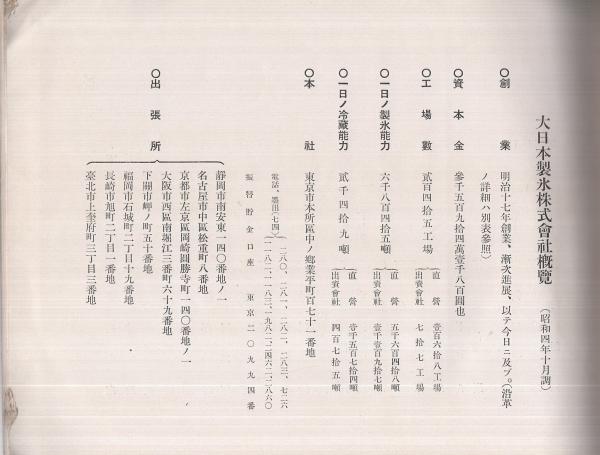 大日本製氷株式會社概覽 (昭和四年十月調)
○創業 明治十七年創業、漸次進展、以テ今日ニ及ブ。(沿革
ノ詳細ハ別表參照)
○資本金 參千五百九拾四萬壹千八百圓也
○工場數 貳百四拾五工場
直營 壹百六拾八工場
出資會社 七拾七工場
○一日ノ製氷能力 六千八百四拾五噸
直營 五千六百四拾八噸
出資會社 壹千壹百九拾七噸
○一日ノ冷藏能力 貳千四拾九噸
直營 壹千五百七拾四噸
出資會社 四百七拾五噸
○本社 東京市本所區中ノ郷業平町百七十一番地
電話、墨田(七四)
二八〇、二八一、二八二、二八三、七二六
一一八二、一一八三、一九八二、二四六二、二八六〇
振替貯金口座 東京二〇九九四番
○出張所
靜岡市南安東一四〇番地ノ一
名古屋市中區松重町八番地
京都市左京區岡崎圓勝寺町一四〇番地ノ一
大阪市西區南堀江三番町六十九番地
下關市岬ノ町五十番地
福岡市石城町二丁目十九番地
長崎市旭町二丁目一番地
臺北市上奎府町三丁目三番地